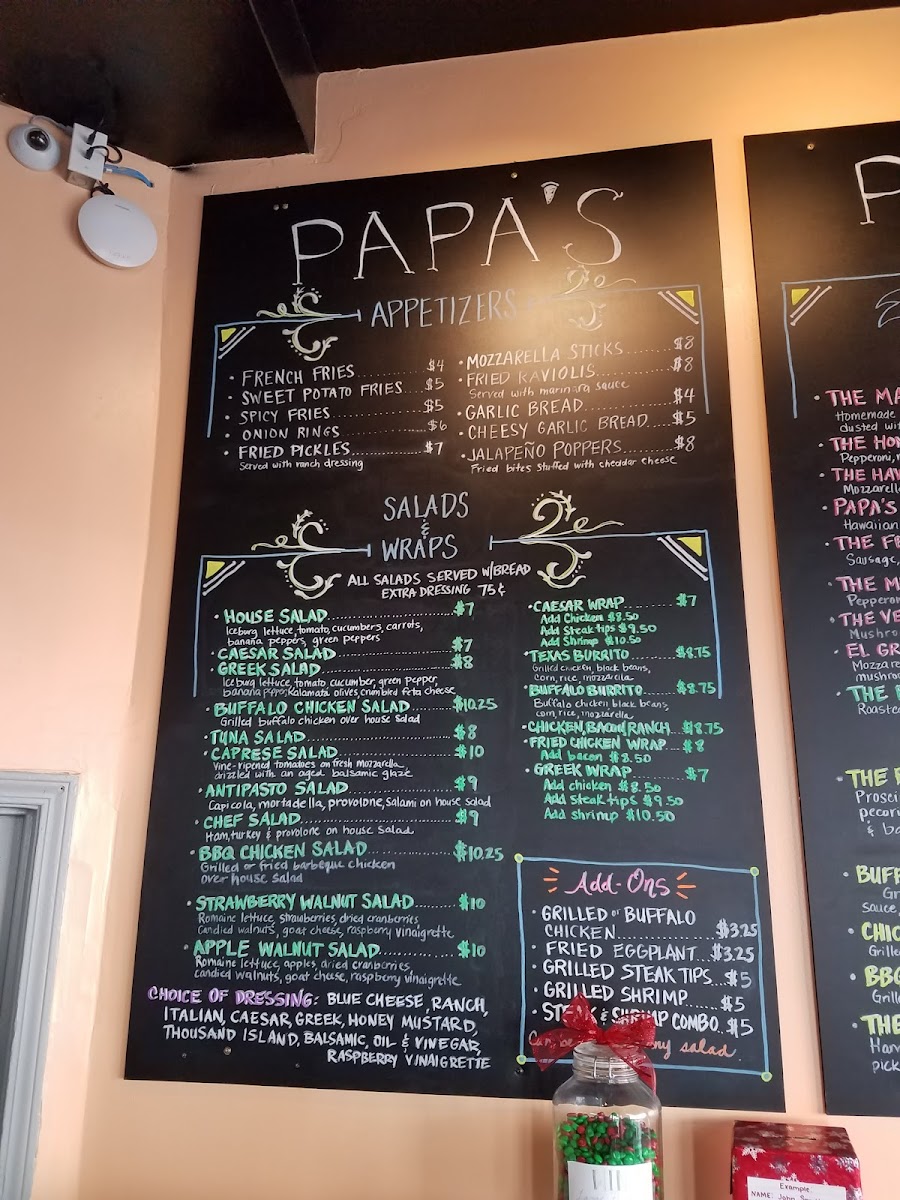 PAPA'S
APPETIZERS
• FRENCH FRIES............$4
• SWEET POTATO FRIES....$5
• SPICY FRIES..............$5
• ONION RINGS.............$6
• FRIED PICKLES............$7
Served with ranch dressing
• MOZZARELLA STICKS.......$8
• FRIED RAVIOLIS...........$8
Served with marinara sauce
• GARLIC BREAD.............$4
• CHEESY GARLIC BREAD....$5
• JALAPEÑO POPPERS.......$8
Fried bites stuffed with cheddar cheese
SALADS
&
WRAPS
ALL SALADS SERVED W/BREAD
EXTRA DRESSING 75¢
• HOUSE SALAD..............$7
Iceburg lettuce, tomato, cucumbers, carrots,
banana peppers, green peppers
• CAESAR SALAD.............$7
• GREEK SALAD..............$8
Iceburg lettuce, tomato cucumber, green pepper,
banana pepp, Kalamata olives, crumbled feta cheese
• BUFFALO CHICKEN SALAD.....$10.25
Grilled buffalo chicken over house salad
• TUNA SALAD...............$8
• CAPRESE SALAD............$10
Vine-ripened tomatoes on fresh mozzarella
drizzled with an aged balsamic glaze
• ANTIPASTO SALAD..........$9
Capicola, mortadella, provolone, salami on house salad
• CHEF SALAD...............$9
Ham, turkey & provolone on house salad
• BBQ CHICKEN SALAD.........$10.25
Grilled or fried barbeque chicken
over house salad
• STRAWBERRY WALNUT SALAD......$10
Romaine lettuce, strawberries, dried cranberries
Candied walnuts, goat cheese, raspberry vinaigrette
• APPLE WALNUT SALAD........$10
Romaine lettuce, apples, dried cranberries,
candied walnuts, goat cheese, raspberry vinaigrette
CHOICE OF DRESSING: BLUE CHEESE, RANCH,
ITALIAN, CAESAR, GREEK, HONEY MUSTARD,
THOUSAND ISLAND, BALSAMIC, OIL & VINEGAR,
RASPBERRY VINAIGRETTE
• CAESAR WRAP.............$7
Add Chicken $8.50
Add Steak tips $9.50
Add Shrimp $10.50
• TEXAS BURRITO...........$8.75
Grilled chicken, black beans,
corn, rice, mozzarella
• BUFFALO BURRITO.........$8.75
Buffalo chicken, black beans,
corn, rice, mozzarella
• CHICKEN, BACON, RANCH...$8.75
• FRIED CHICKEN WRAP...$8
Add bacon $8.50
• GREEK WRAP.............$7
Add chicken $8.50
Add steak tips $9.50
Add shrimp $10.50
Add-Ons
• GRILLED or BUFFALO
CHICKEN.............$3.25
• FRIED EGGPLANT...$3.25
• GRILLED STEAK TIPS...$5
• GRILLED SHRIMP.......$5
• STEAK & SHRIMP COMBO..$5
salad
P
• THE MA
Homemade
dusted wit
• THE HON
Pepperoni,
• THE HAW
Mozzarell
• PAPA'S
Hawaiian
• THE F
Sausage,
• THE M
Pepperon
• THE VE
Mushro
• EL GR
Mozzare
mushroo
• THE
Roaste
• THE
Prosci
pecori
& ba
• BUFF
Gri
sauce,
• CHIC
Grille
• BBQ
Gril
• THE
Ham
pick
Example
NAME: John